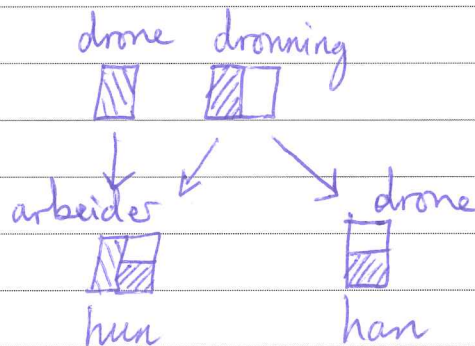 drone dronning
arbeider drone
hun han